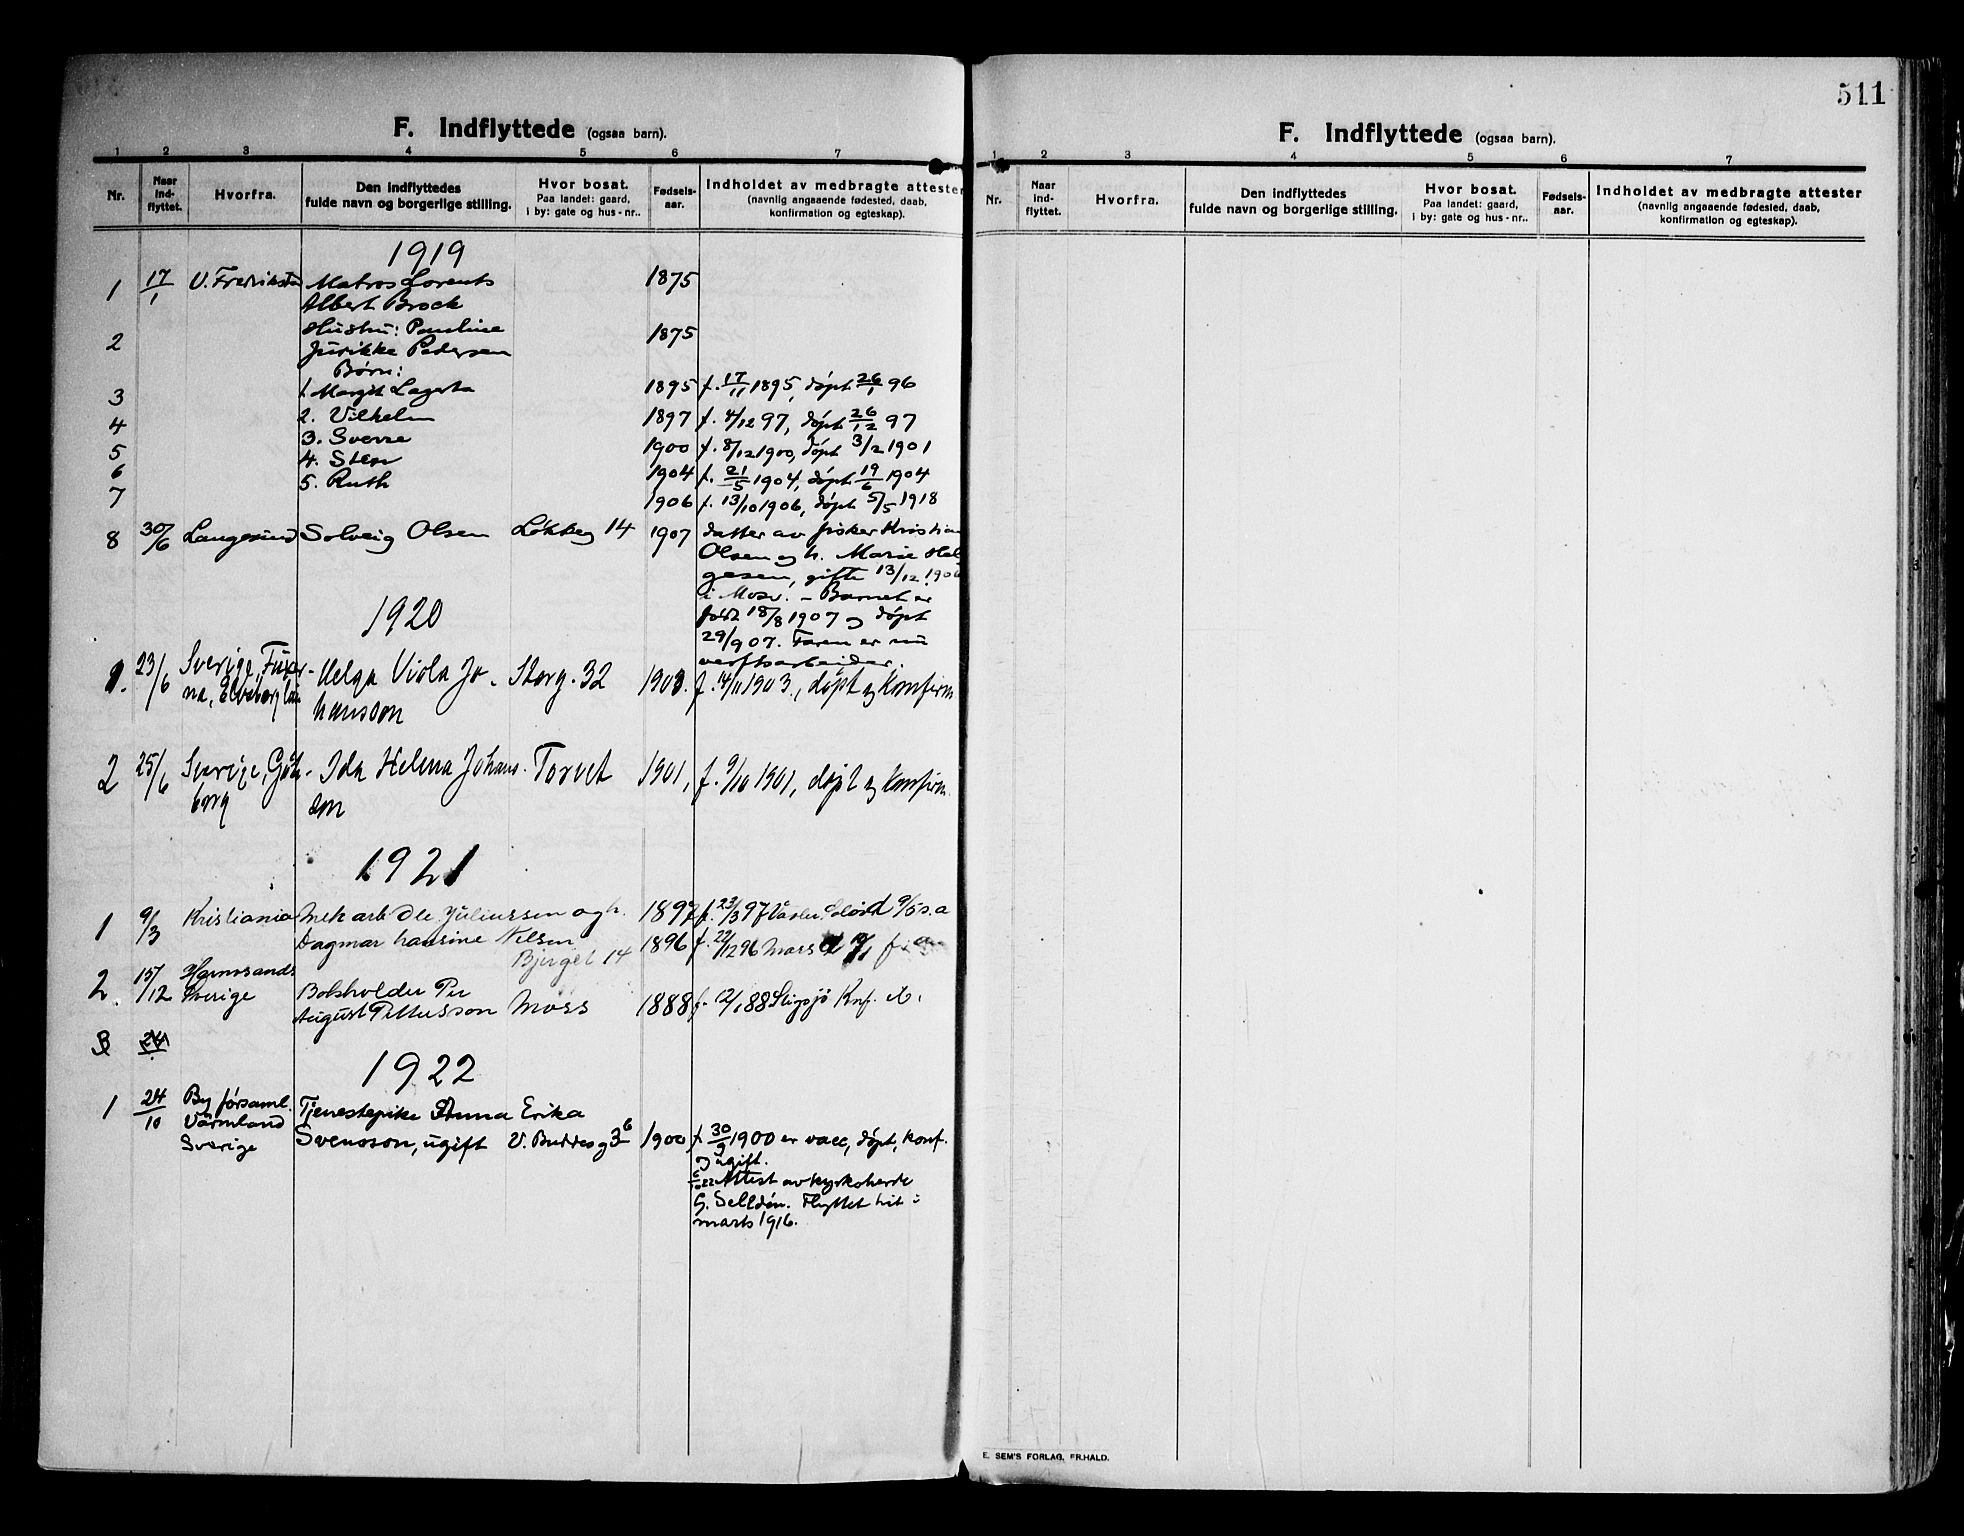 511
F. Indflyttede (ogsaa barn).
1 2 3 4 5 6 7
Nr. Naar ind- flyttet. Hvorfra. Den indflyttedes fulde navn og borgerlige stilling. Hvor bosat. Paa landet: gaard, i by: gate og hus-nr.. Fødsels- aar. Indholdet av medbragte attester (navnlig angaaende fødested, daab, konfirmation og egteskap).
1919
1 17/1 V. Fredriksta Matros Lorents 1875
Albert Brock
2 Hustru: Pauline 1875
Jurikke Pedersen
Børn:
3 1. Margit Lagerta 1895 f. 17/11 1895, døpt 26/1 96
4 2. Vilhelm 1897 f. 4/12 97, døpt 26/12 97
5 3. Sverre 1900 f. 8/12 1900, døpt 3/2 1901
6 4. Sten 1904 f. 21/5 1904, døpt 19/6 1904
7 5. Ruth 1906 f. 13/10 1906, døpt 5/5 1918
8 30/6 Langesund Solveig Olsen Løkkeg 14 1907 datter av fisker Kristian
Olsen og h. Marie Hel
gesen, gifte 13/12 1906
i Mosv. - Barnet er
født 18/8 1907 og døpt
29/9 07. Faren er nu
verftsarbeider.
1920
1. 23/6 Sverige, Fuxer- Helga Viola Jo- Storg. 32 1903. f. 14/11 1903., døpt og konfirm
na, Elvsborg län hansson
2 25/6 Sverige, Göte- Ida Helena Johans- Torvet 1901, f. 9/10 1901, døpt og konfirm.
borg son
1921
1 9/3 Kristiania Mek arb Ole Juliussen og h. 1897 f. 23/3 97 Vaaler. Solør d 9/5 s.a
Dagmar Hansine Nilsen 1896 f. 22/12 96 Moss d
Bjerget 14
2 15/12 Hernösands
Sverige Bokholder Per
August Pettersson Moss 1888 f. 12/1 88 Stigsjö Knf.
3 24
1922
1 24/10 By församl. Tjenestepike Anna Erika
Värmland
Sverige Svensson, ugift V. Buddesg 36 1900 f 30/9 1900 er vacc, døpt, konf.
og ugift.
Attest av kyrkoherde
G. Selldén. Flyttet hit i
marts 1916.
F. Indflyttede (ogsaa barn).
1 2 3 4 5 6 7
Nr. Naar ind- flyttet. Hvorfra. Den indflyttedes fulde navn og borgerlige stilling. Hvor bosat. Paa landet: gaard, i by: gate og hus-nr.. Fødsels- aar. Indholdet av medbragte attester (navnlig angaaende fødested, daab, konfirmation og egteskap).
E. SEM'S FORLAG, FR.HALD.